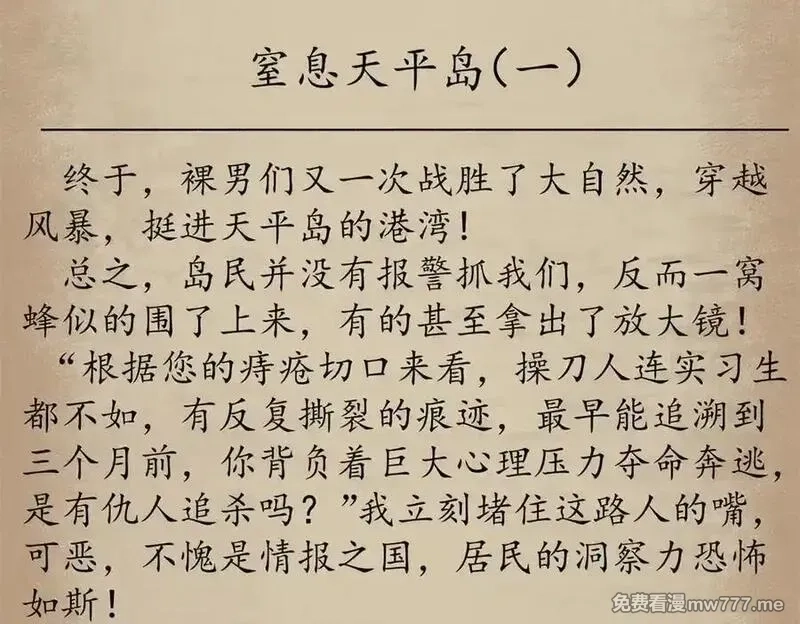 窒息天平岛(一)
终于，裸男们又一次战胜了大自然，穿越
风暴，挺进天平岛的港湾！
总之，岛民并没有报警抓我们，反而一窝
蜂似的围了上来，有的甚至拿出了放大镜！
“根据您的痔疮切口来看，操刀人连实习生
都不如，有反复撕裂的痕迹，最早能追溯到
三个月前，你背负着巨大心理压力夺命奔逃，
是有仇人追杀吗？”我立刻堵住这路人的嘴，
可恶，不愧是情报之国，居民的洞察力恐怖
如斯！
免费看漫mw777.me